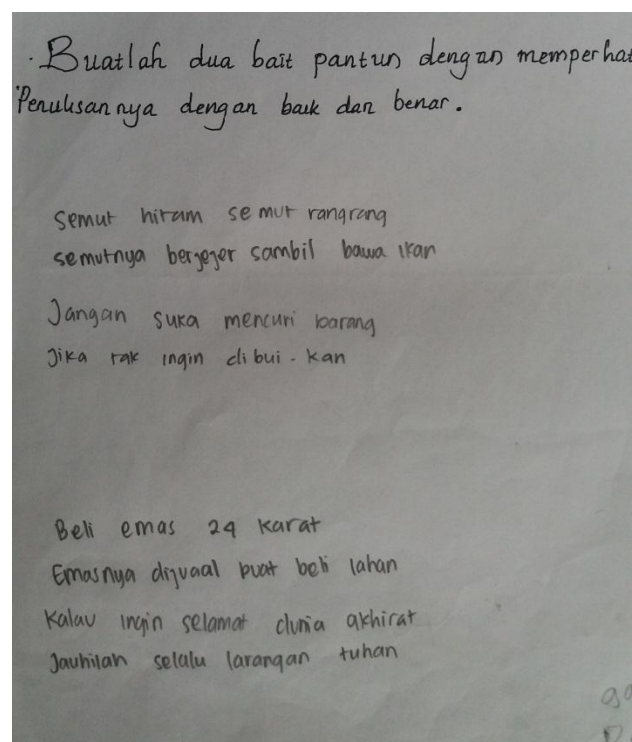 . Buatlah dua bait pantun dengan memperhat
Penulisannya dengan baik dan benar.
Semut hitam semut rangrang
semutnya berjejer sambil bawa ikan
Jangan suka mencuri barang
Jika tak ingin di bui - kan
Beli emas 24 karat
Emasnya dijuaal buat beli lahan
Kalau ingin selamat dunia akhirat
Jauhilah selalu larangan tuhan